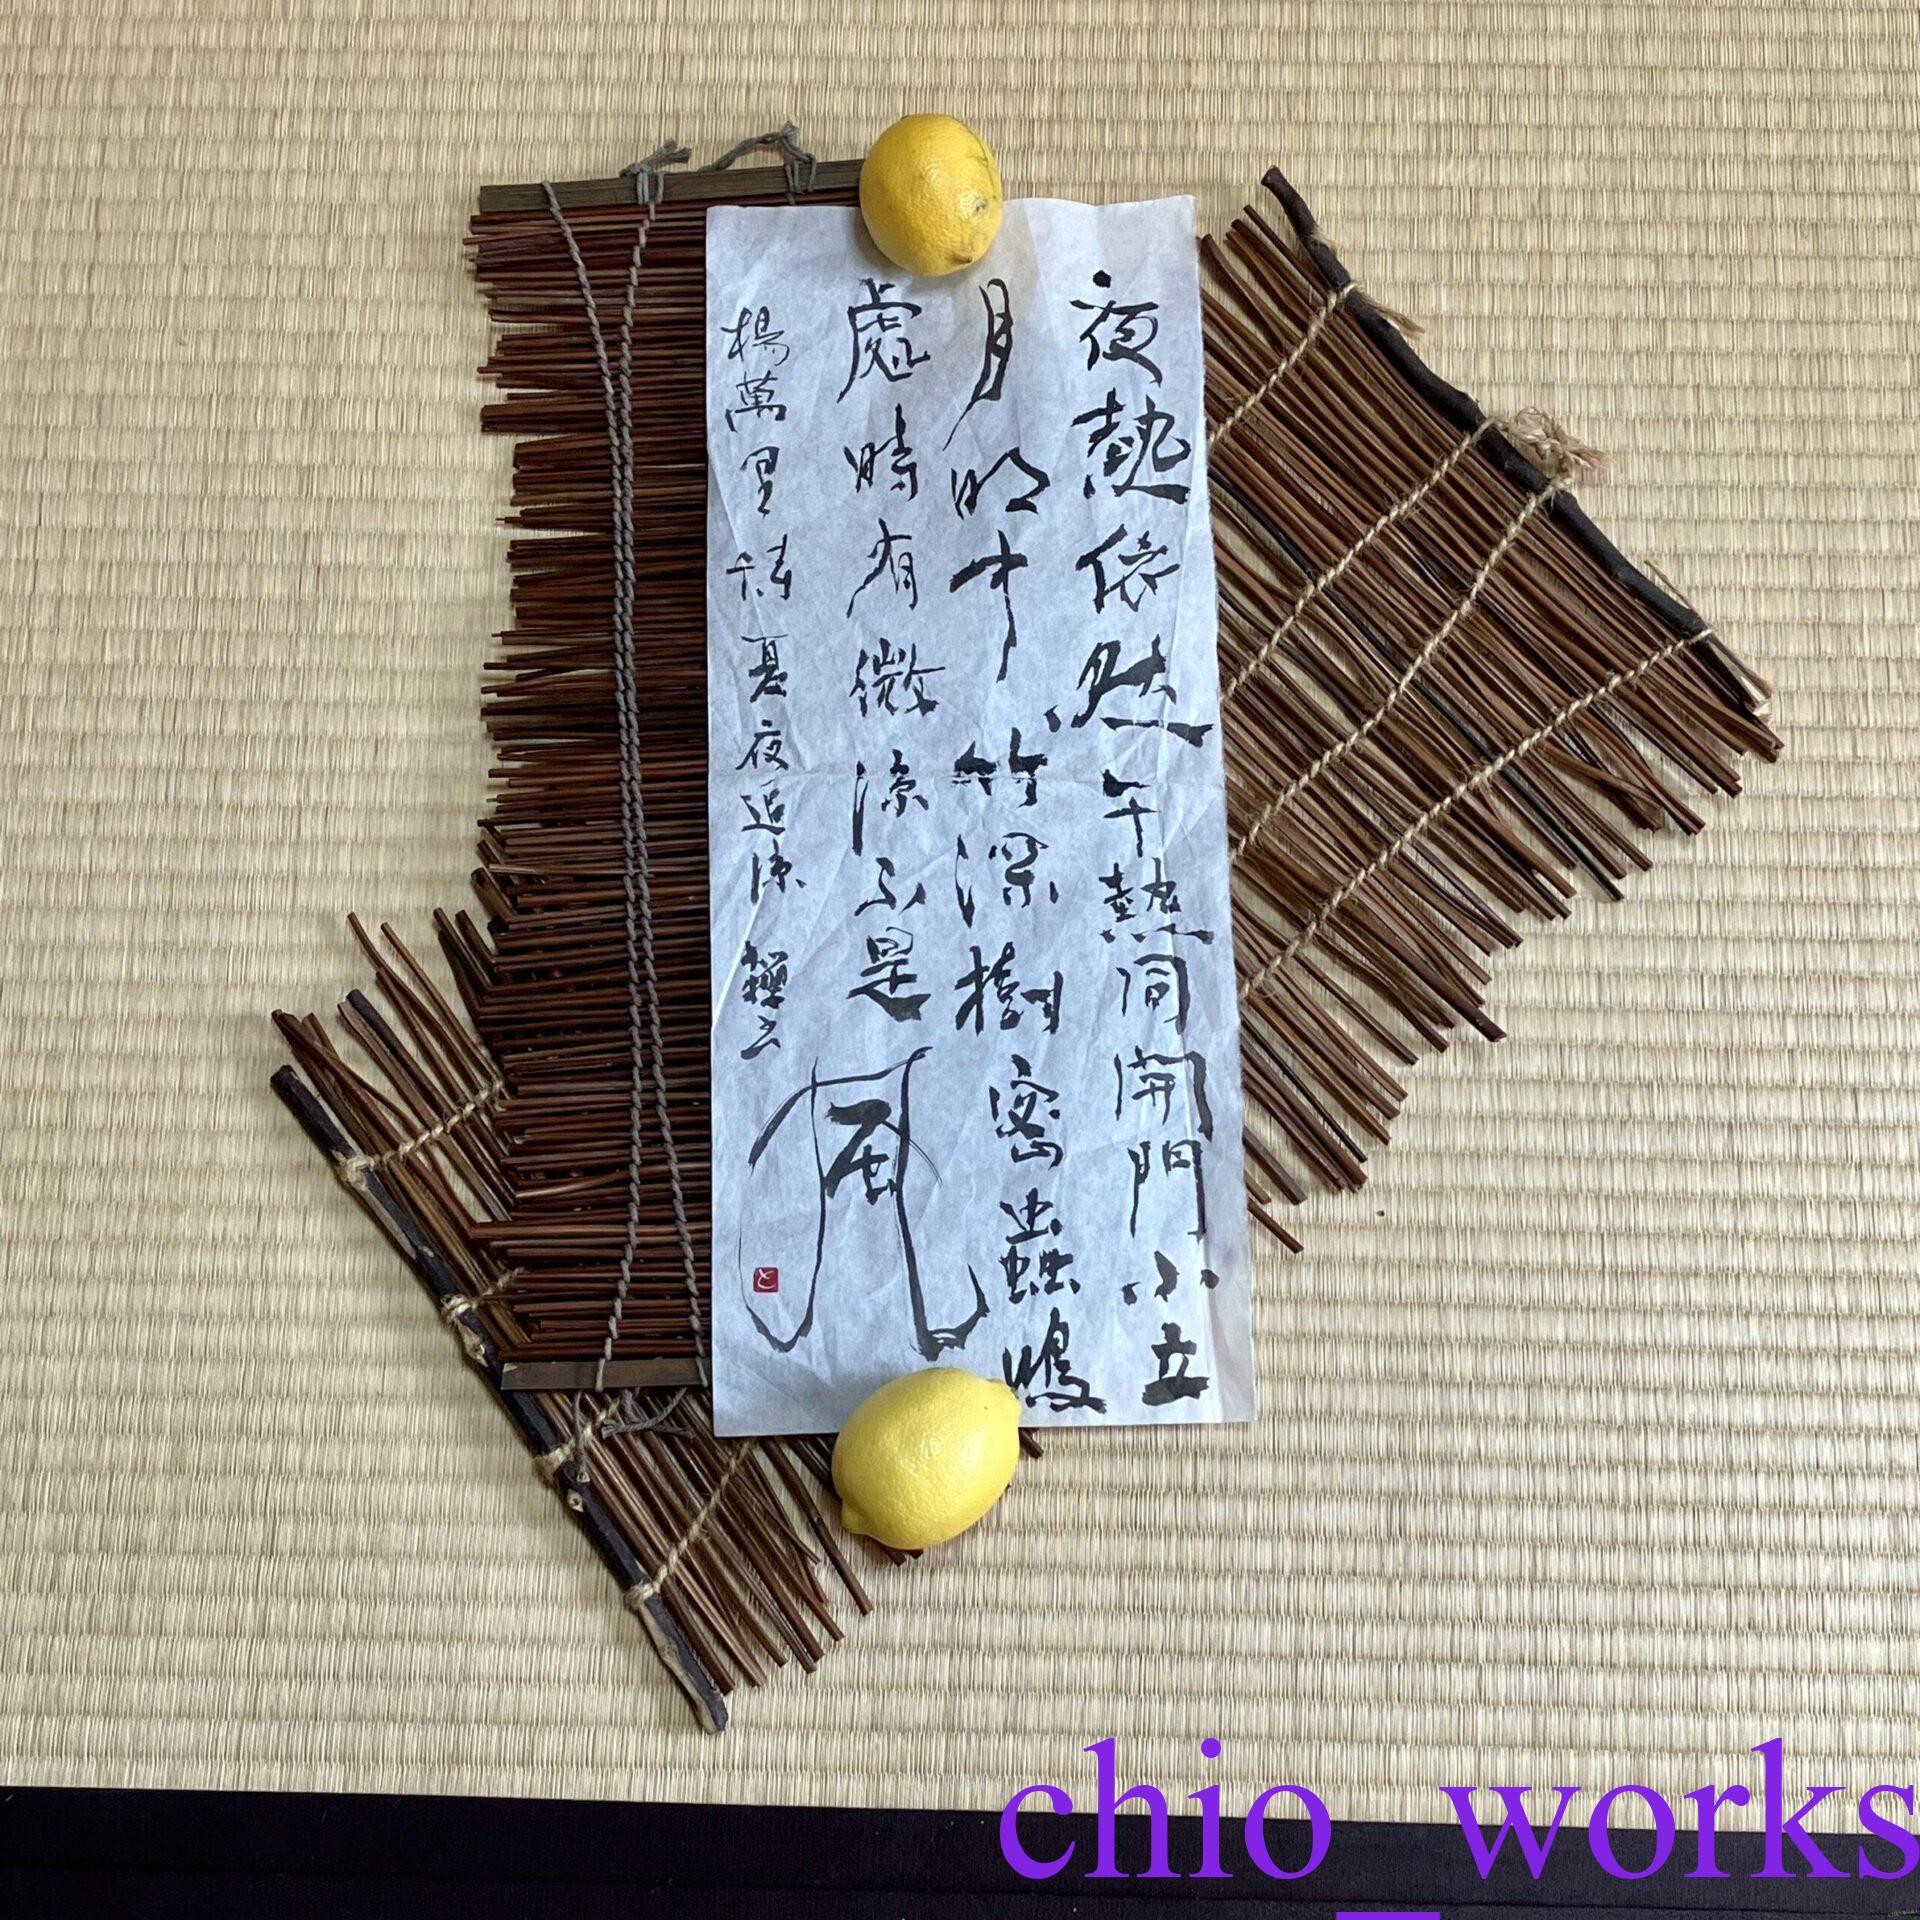 夜熱依然午熱同開門小立
月明中竹深樹密蟲鳴
處時有微涼不是風
楊萬里詩夏夜追涼
と
chio_works